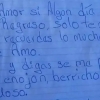 Amor si Algún día
Regreso, solo te
recuerdas lo mucho
te Amo.
y digas se me
enojón, berrincho